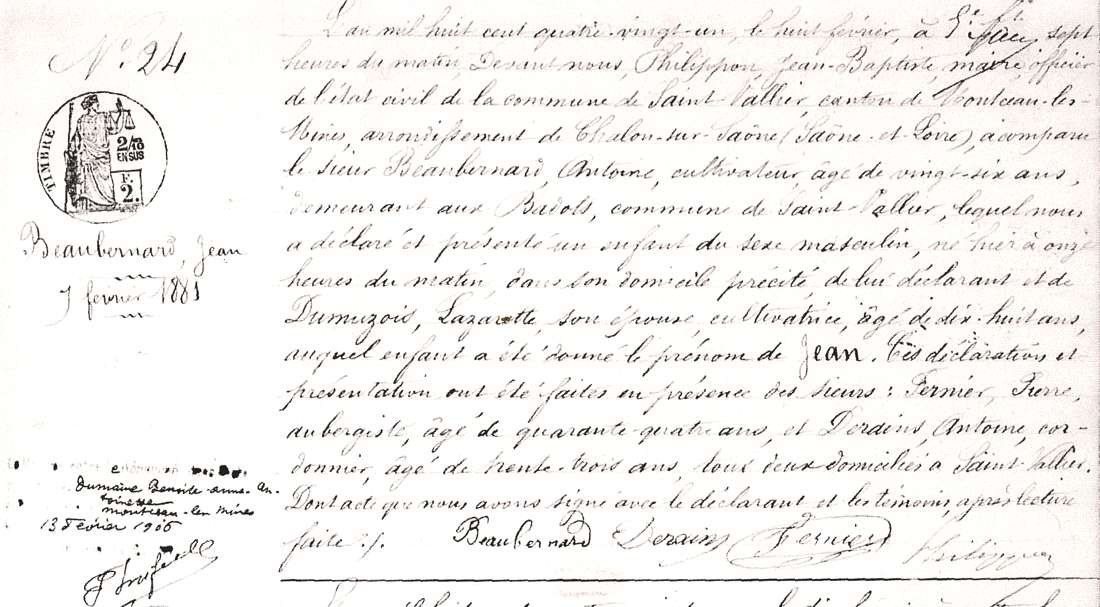 N° 24
TIMBRE
2/10
EN SUS
F.
2.
Beaubernard, Jean
7 février 1881
Dumaine Benoite-anne-An-
toinette
montceau-les-Mines
13 Février 1906
L'an mil huit cent quatre-vingt-un, le huit février, à sept
heures du matin, Devant nous, Philippon, Jean-Baptiste, maire, officier
de l'état civil de la commune de Saint-Vallier, canton de Montceau-les-
Mines, arrondissement de Chalon-sur-Saône (Saône-et-Loire), a comparu
le sieur Beaubernard, Antoine, cultivateur, âgé de vingt-six ans,
demeurant aux Badots, commune de Saint-Vallier, lequel nous
a déclaré et présenté un enfant du sexe masculin, né hier à onze
heures du matin, dans son domicile précité, de lui déclarant et de
Dumuzois, Lazarette, son épouse, cultivatrice, âgé de dix-huit ans,
auquel enfant a été donné le prénom de Jean. Ces déclaration et
présentation ont été faites en présence des sieurs : Fernier, Pierre,
aubergiste, âgé de quarante-quatre ans, et Derains, Antoine, cor-
donnier, âgé de trente-trois ans, tous deux domiciliés à Saint-Vallier.
Dont acte que nous avons signé avec le déclarant et les témoins, après lecture
faite ./.
Beaubernard Derains Fernier Philippon